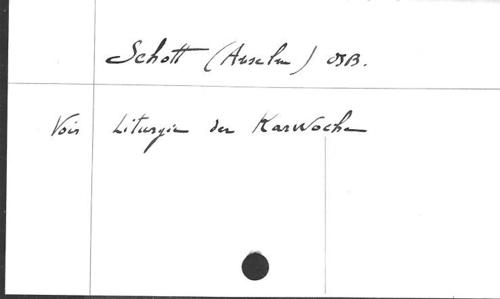 Schott (Anselm) OSB.
Voir Liturgie der Karwoche